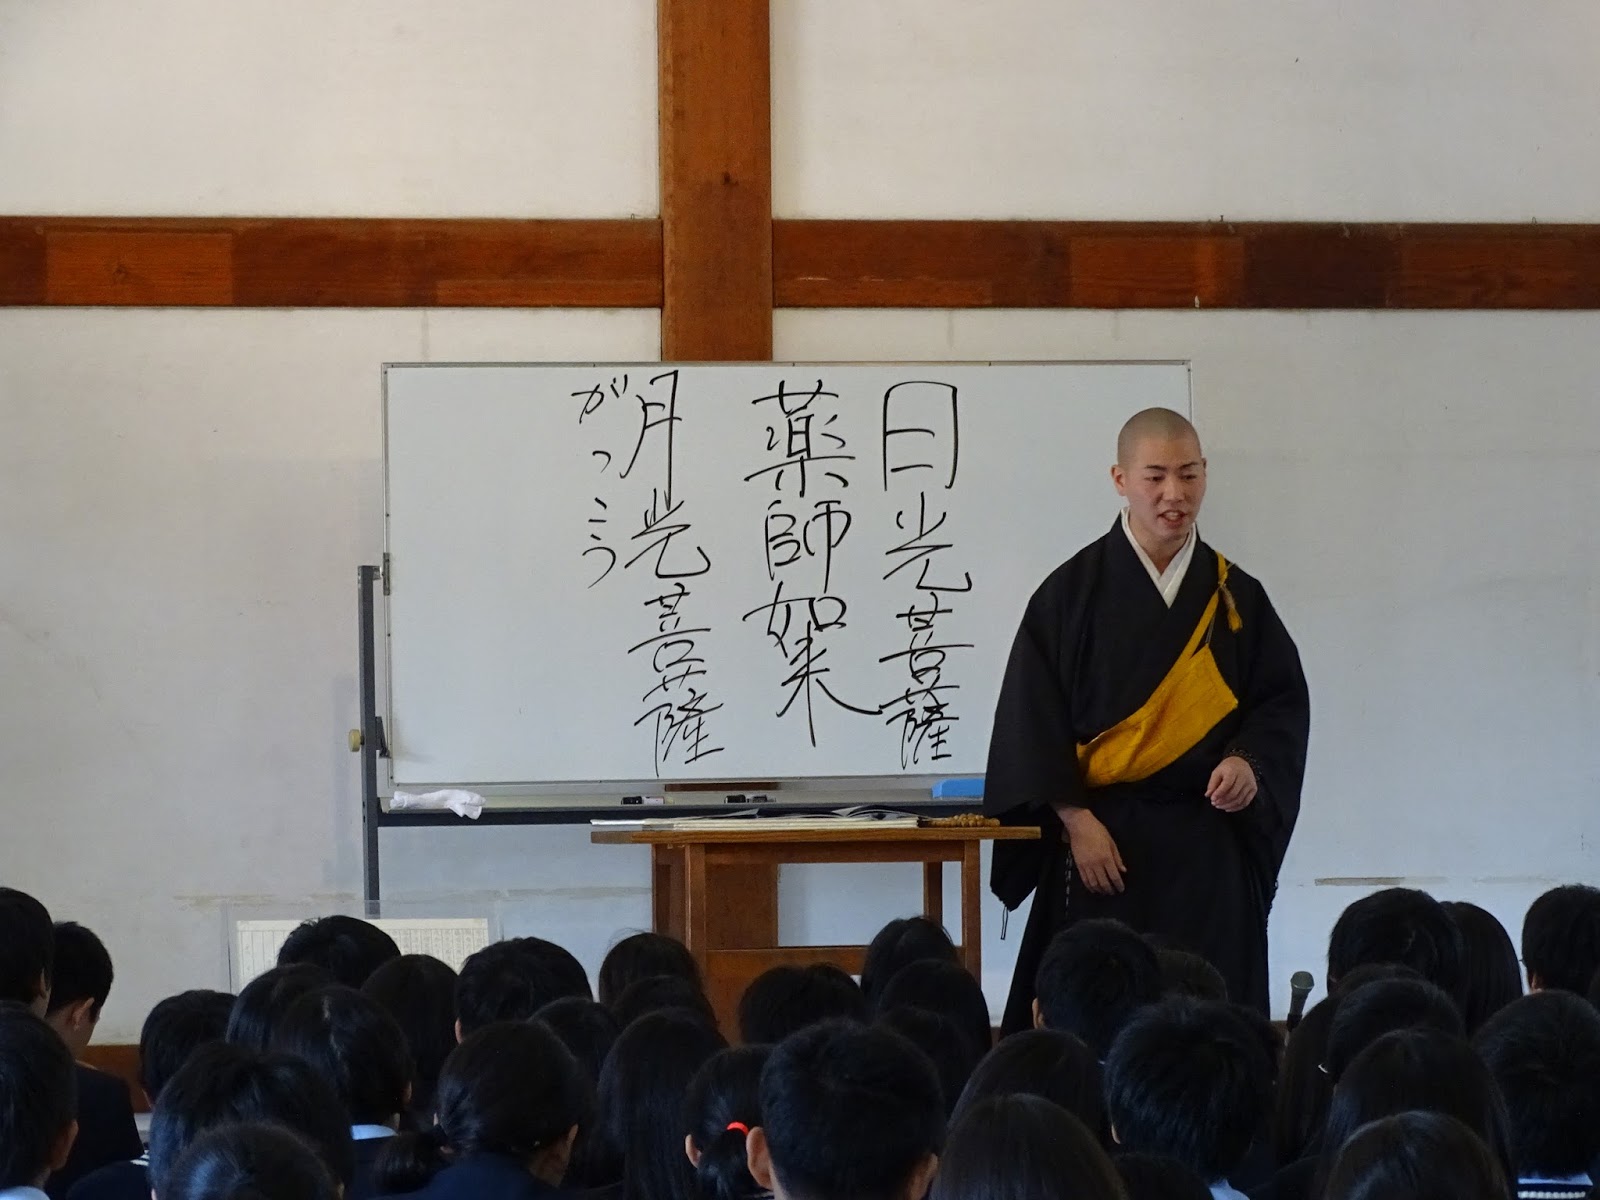 日光菩薩
薬師如来
月光菩薩
がっこう